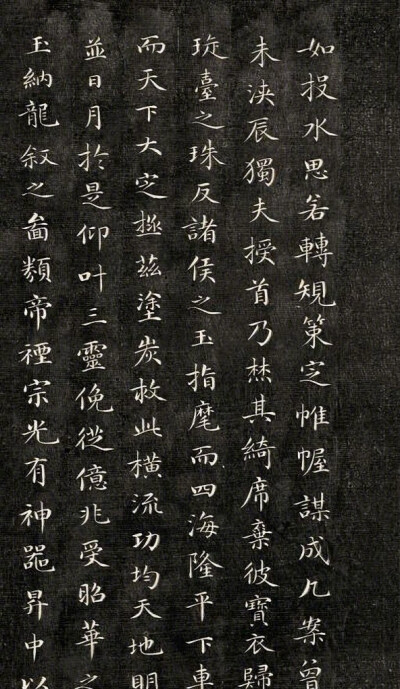 如投水思若轉規策定帷幄謀成几案曾
未浹辰獨夫授首乃焚其綺席棄彼寶衣歸
琁臺之珠反諸侯之玉指麾而四海隆平下車
而天下大定拯茲塗炭救此橫流功均天地明
並日月於是仰叶三靈俛從億兆受昭華之
玉納龍叙之啚類帝禋宗光有神器昇中以